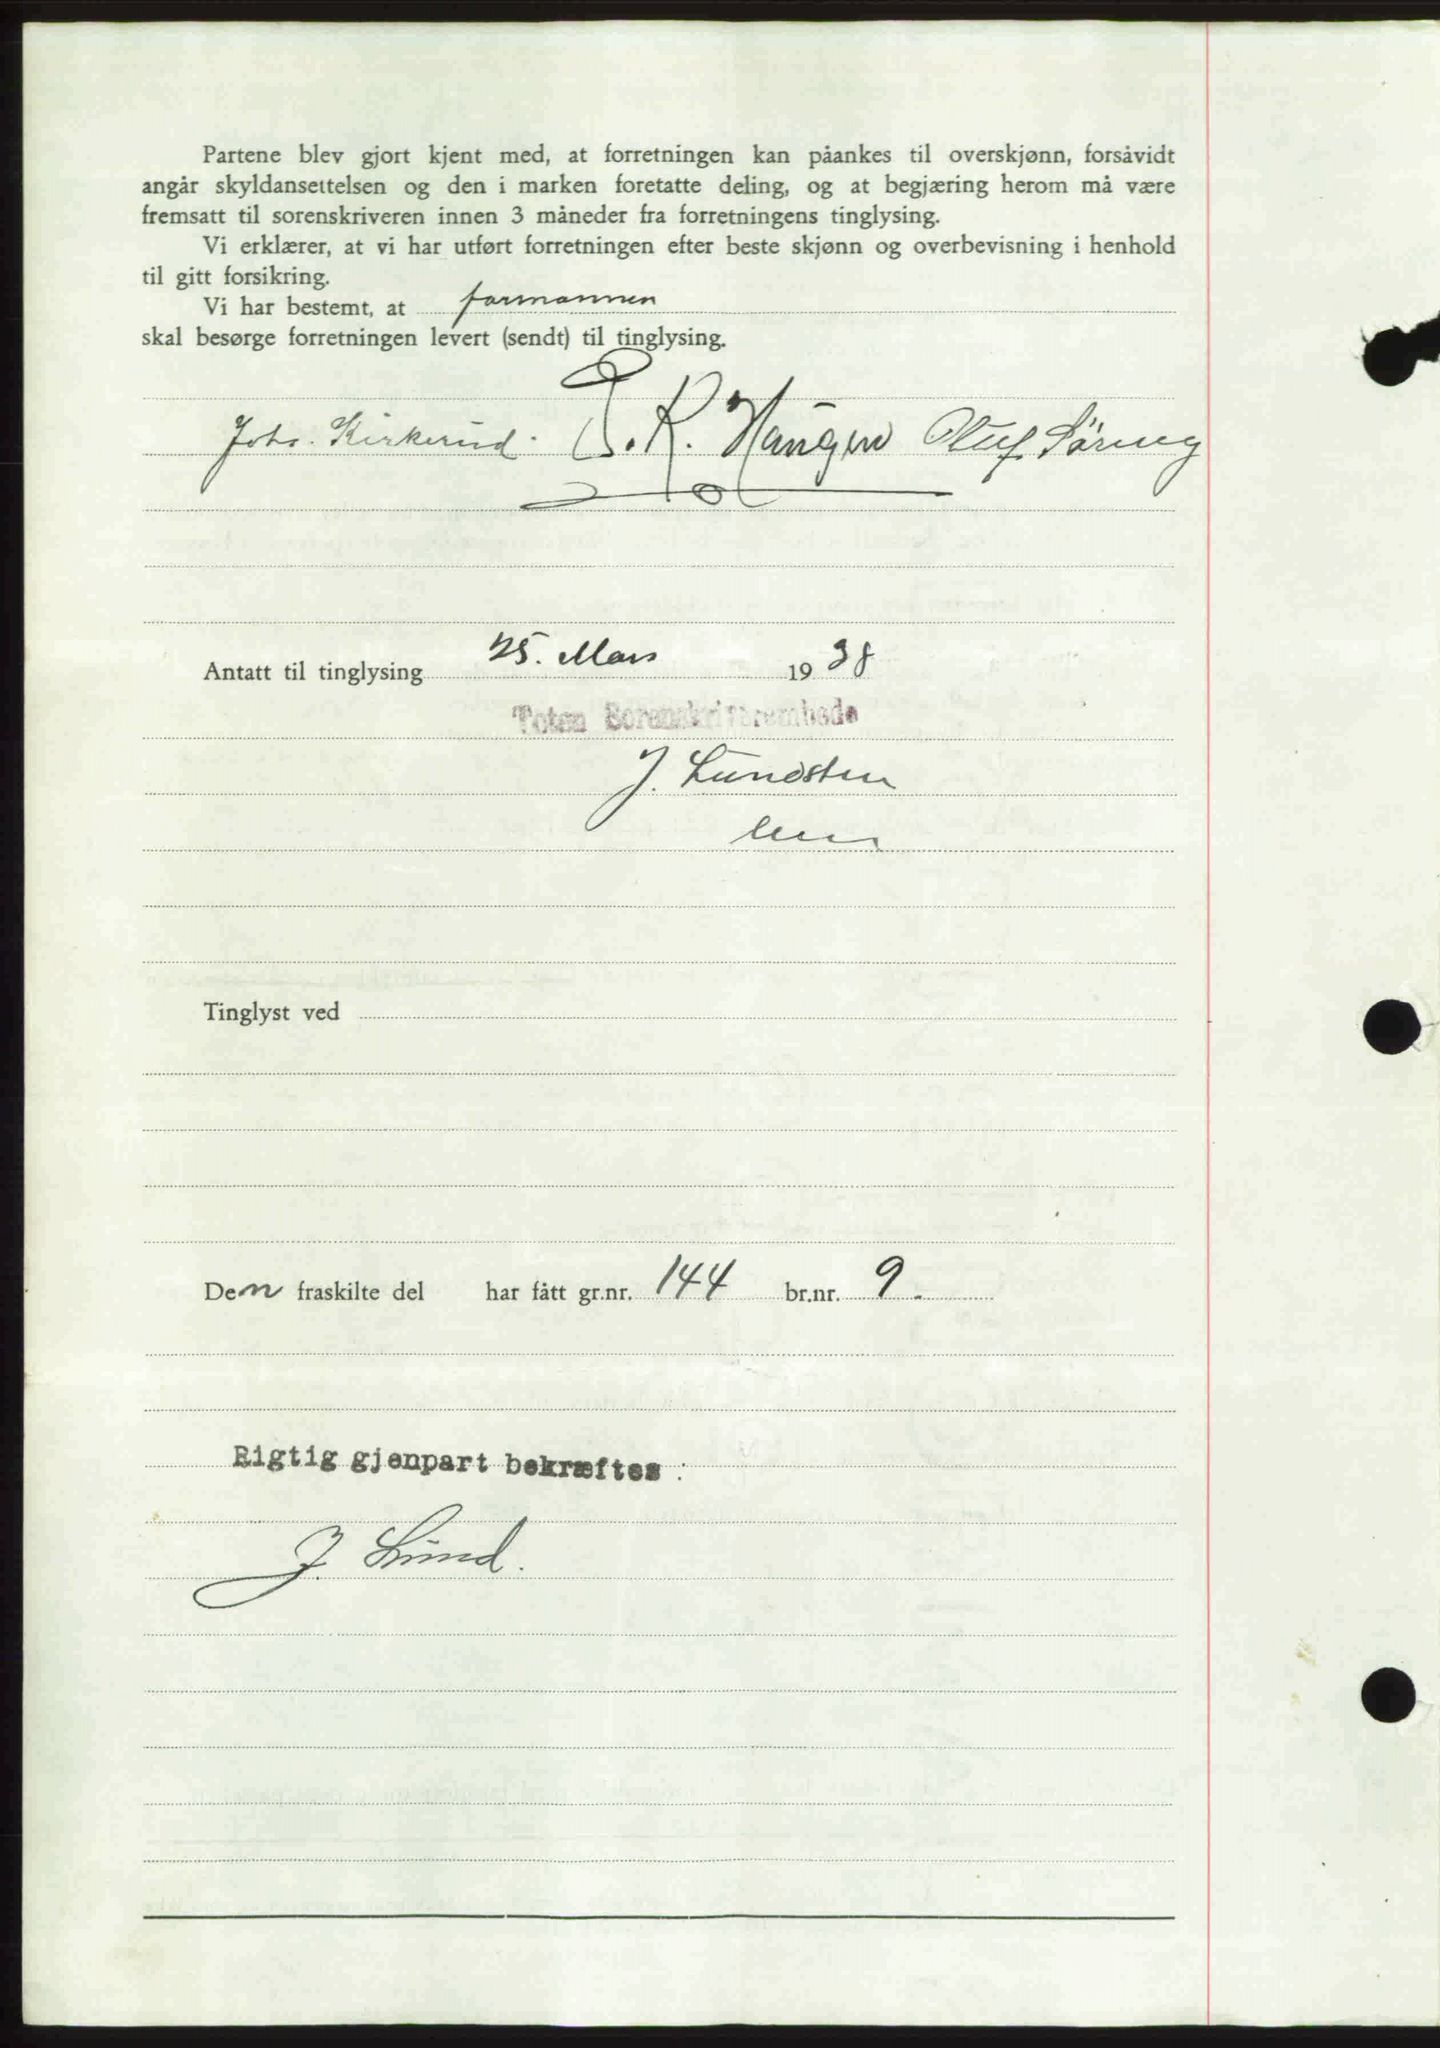 Partene blev gjort kjent med, at forretningen kan påankes til overskjønn, forsåvidt
angår skyldansettelsen og den i marken foretatte deling, og at begjæring herom må være
fremsatt til sorenskriveren innen 3 måneder fra forretningens tinglysing.
Vi erklærer, at vi har utført forretningen efter beste skjønn og overbevisning i henhold
til gitt forsikring.
Vi har bestemt, at formannen
skal besørge forretningen levert (sendt) til tinglysing.
Johs. Kirkerud. P. K. Haugen Oluf
Antatt til tinglysing 25. Mars 1938
Toten Sorenskriverembede
J. Lundsten
Tinglyst ved
Den fraskilte del har fått gr.nr. 144 br.nr. 9.
Rigtig gjenpart bekræftes:
J. Lund.